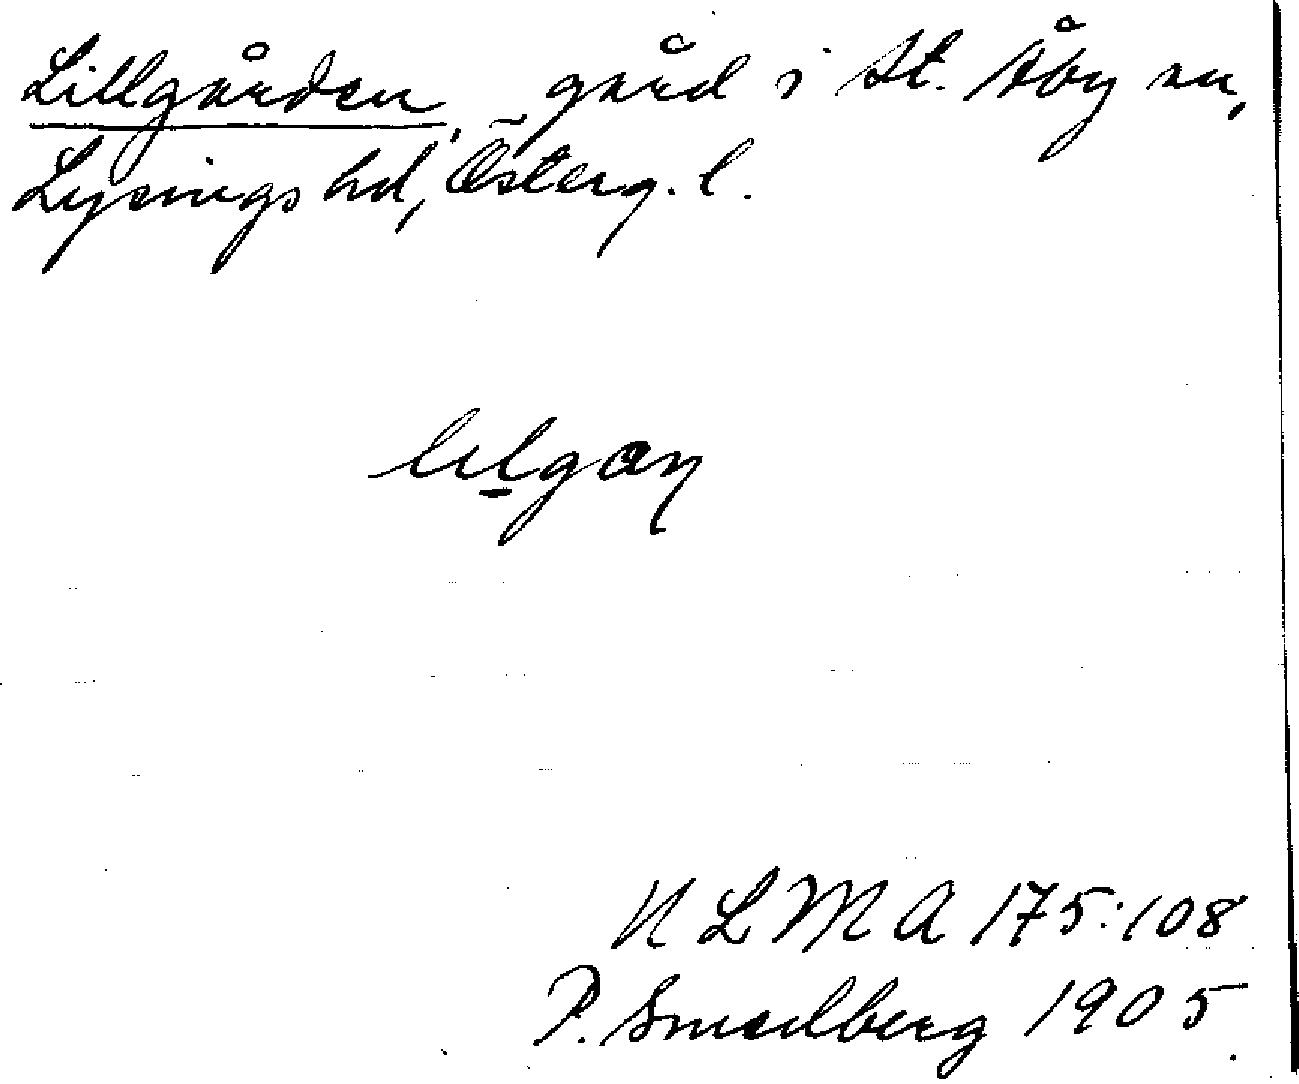 Lillgården, gård i St. Åby sn,
Lysings hd, Österg. l.
lilgan
ULMA 175:108
P. Smedberg 1905